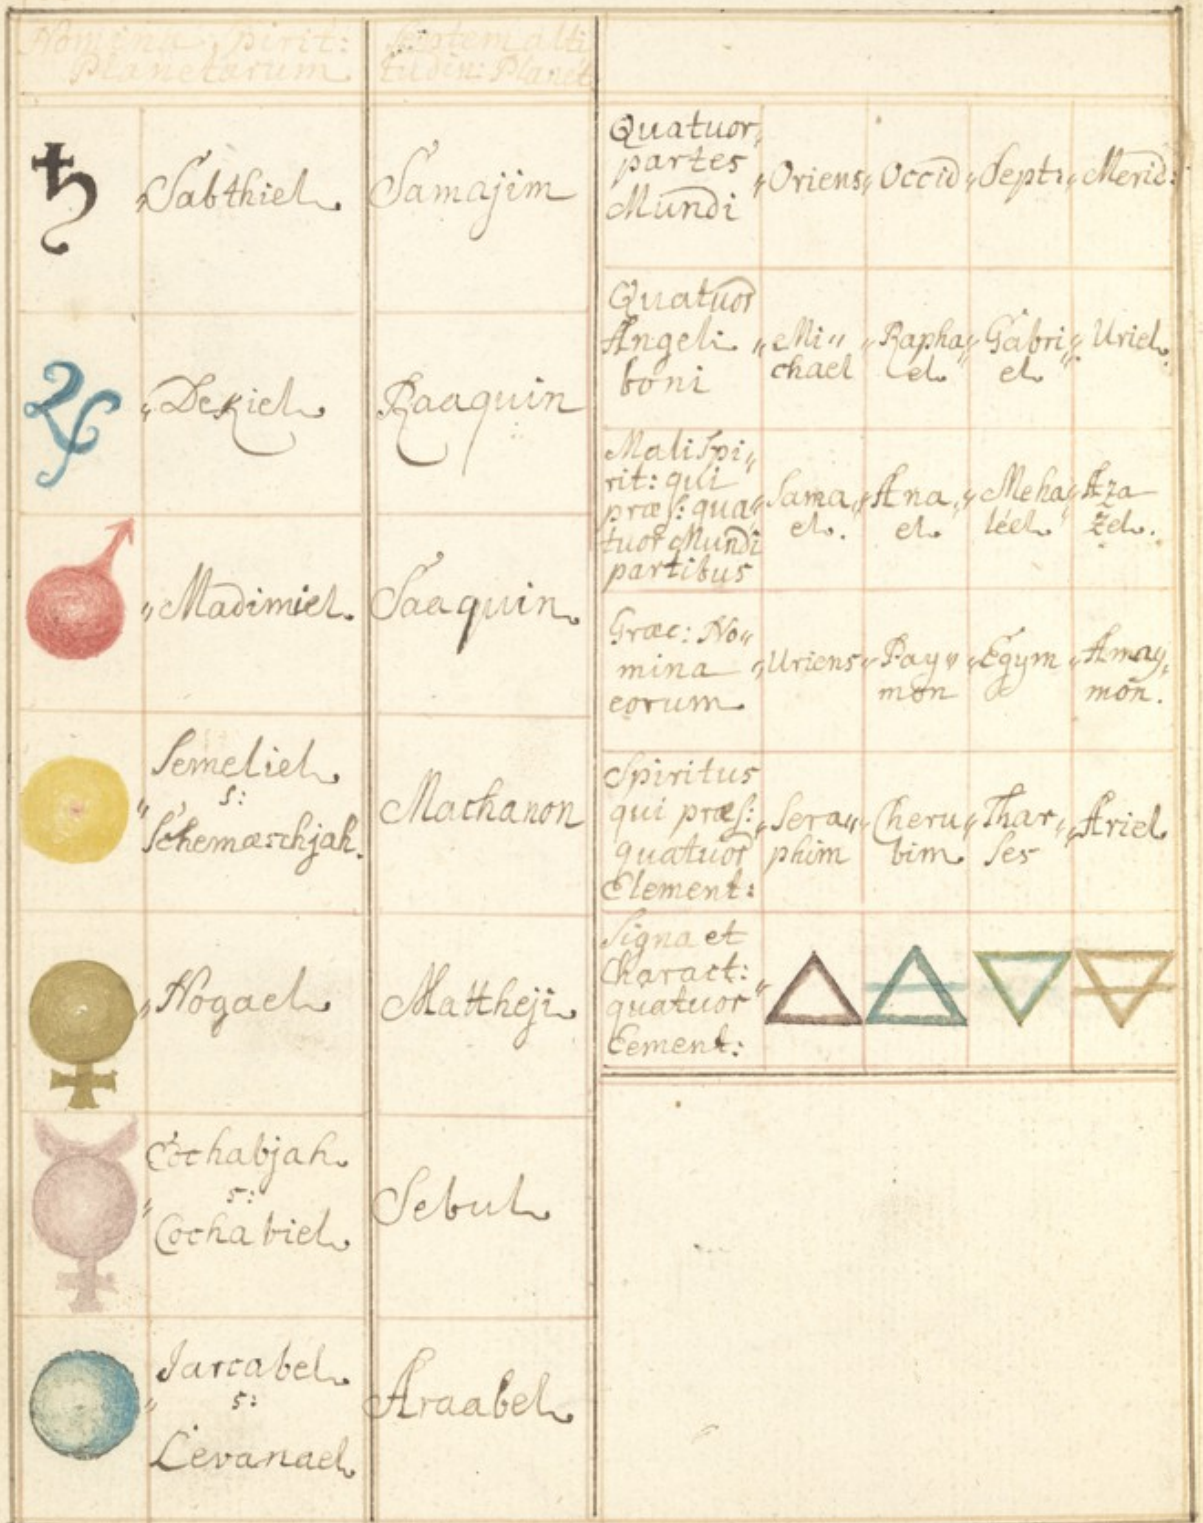 Nomina Spirit:
Planetarum
Septem alti
tudin: Planet
Sabthiel
Samajim
Dekiel
Raaquin
Madimiel.
Saaquin.
Semeliel
s:
Schemæschjah.
Machanon
Nogael
Mattheji
Cochabjah
s:
Cochabiel
Sebul
Jarcabel
s:
Levanael
Araabel
Quatuor
partes
Mundi
"Oriens "Occid "Septi "Merid:
Quatuor
Angeli
boni
"Mi"
chael
"Rapha"
el
Gabri"
el
Uriel.
Mali Spi"
rit: qui
præs: qua"
tuor Mundi
partibus
Sama"
el.
Ana"
el
Meha"
léel
Aza
zel.
Græc: No"
mina
eorum
"Uriens
"Pay"
mon
"Egym
"Amay"
mon.
Spiritus
qui præs:
quatuor
Element:
"Sera"
phim
Cheru"
bim
Thar"
ses
"Ariel
Signa et
Charact:
quatuor"
Eement: